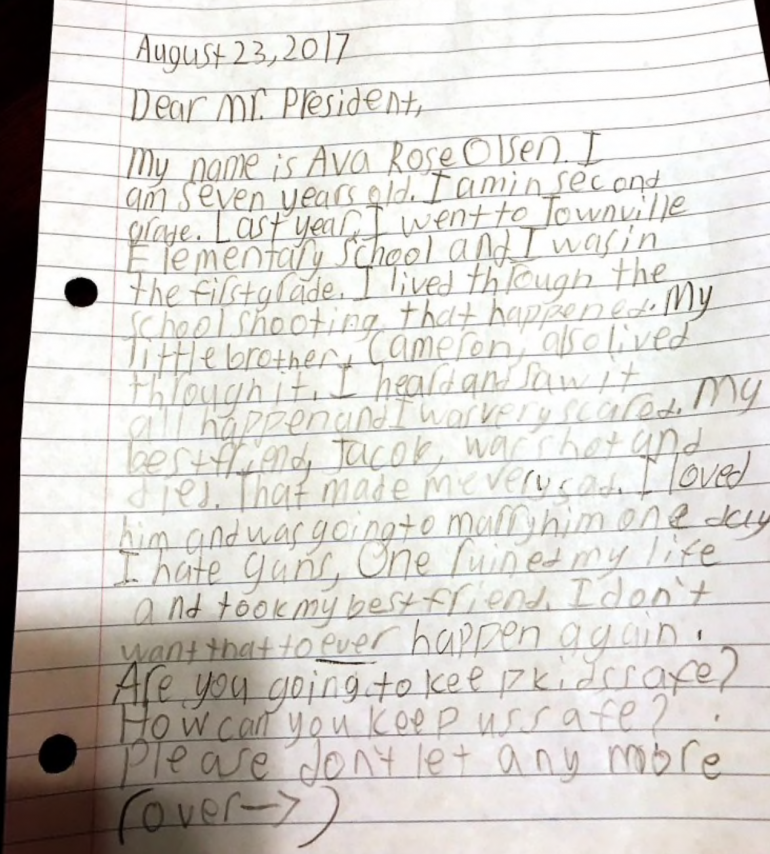 August 23, 2017
Dear Mr. President,
My name is Ava Rose Olsen. I
am seven years old. I am in second
grade. Last year, I went to Townville
Elementary School and I was in
the first grade. I lived through the
school shooting that happened. My
little brother, Cameron, also lived
through it. I heard and saw it
all happen and I was very scared. My
best friend, Jacob, was shot and
died. That made me very sad. I loved
him and was going to marry him one day
I hate guns. One ruined my life
and took my best friend. I don't
want that to ever happen again.
Are you going to keep kids safe?
How can you keep us safe?
Please don't let any more
(over→)